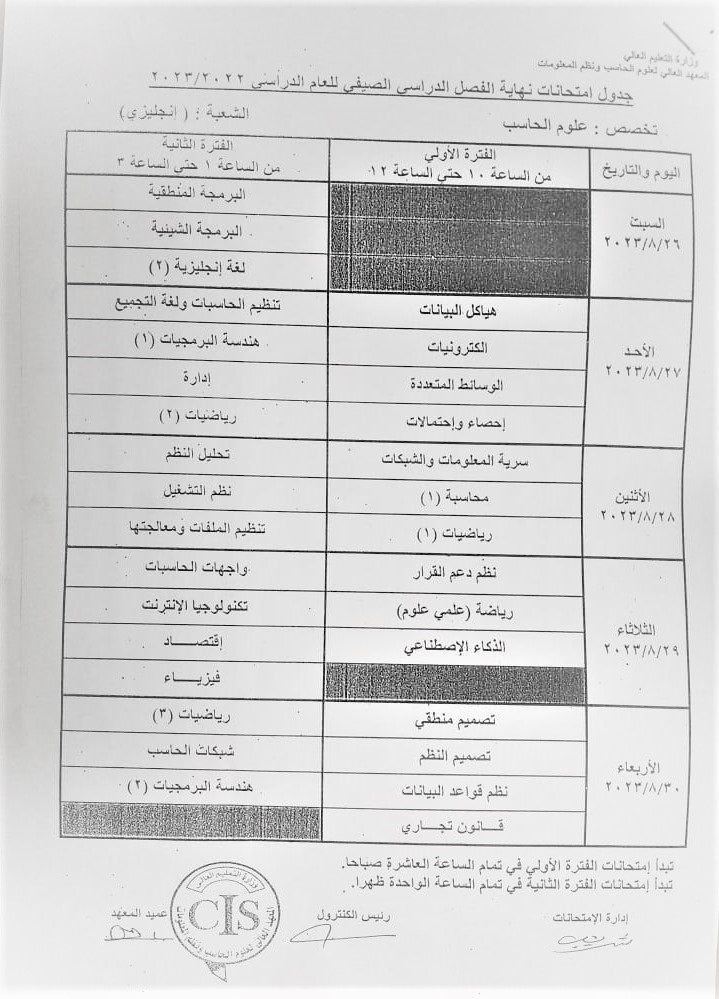 وزارة التعليم العالي
المعهد العالي لعلوم الحاسب ونظم المعلومات
جدول امتحانات نهاية الفصل الدراسي الصيفي للعام الدراسي ٢٠٢٣/٢٠٢٢
تخصص : علوم الحاسب
الشعبة : ( إنجليزي)
اليوم والتاريخ
الفترة الأولي
من الساعة ١٠ حتي الساعة ١٢
الفترة الثانية
من الساعة ١ حتي الساعة ٣
السبت
٢٠٢٣/٨/٢٦
البرمجة المنطقية
البرمجة الشيئية
لغة إنجليزية (٢)
الأحد
٢٠٢٣/٨/٢٧
هياكل البيانات
تنظيم الحاسبات ولغة التجميع
الكترونيات
هندسة البرمجيات (١)
الوسائط المتعددة
إدارة
إحصاء وإحتمالات
رياضيات (٢)
الأثنين
٢٠٢٣/٨/٢٨
سرية المعلومات والشبكات
تحليل النظم
محاسبة (١)
نظم التشغيل
رياضيات (١)
تنظيم الملفات ومعالجتها
الثلاثاء
٢٠٢٣/٨/٢٩
نظم دعم القرار
واجهات الحاسبات
رياضة (علمي علوم)
تكنولوجيا الإنترنت
الذكاء الإصطناعي
إقتصـــــاد
فيزيـــــاء
الأربعاء
٢٠٢٣/٨/٣٠
تصميم منطقي
رياضيات (٣)
تصميم النظم
شبكات الحاسب
نظم قواعد البيانات
هندسة البرمجيات (٢)
قـــانون تجـــاري
تبدأ إمتحانات الفترة الأولي في تمام الساعة العاشرة صباحا.
تبدأ إمتحانات الفترة الثانية في تمام الساعة الواحدة ظهرا.
إدارة الإمتحانات
رئيس الكنترول
عميد المعهد
وزارة التعليم العالي
CIS
المعهد العالي لعلوم الحاسب ونظم المعلومات